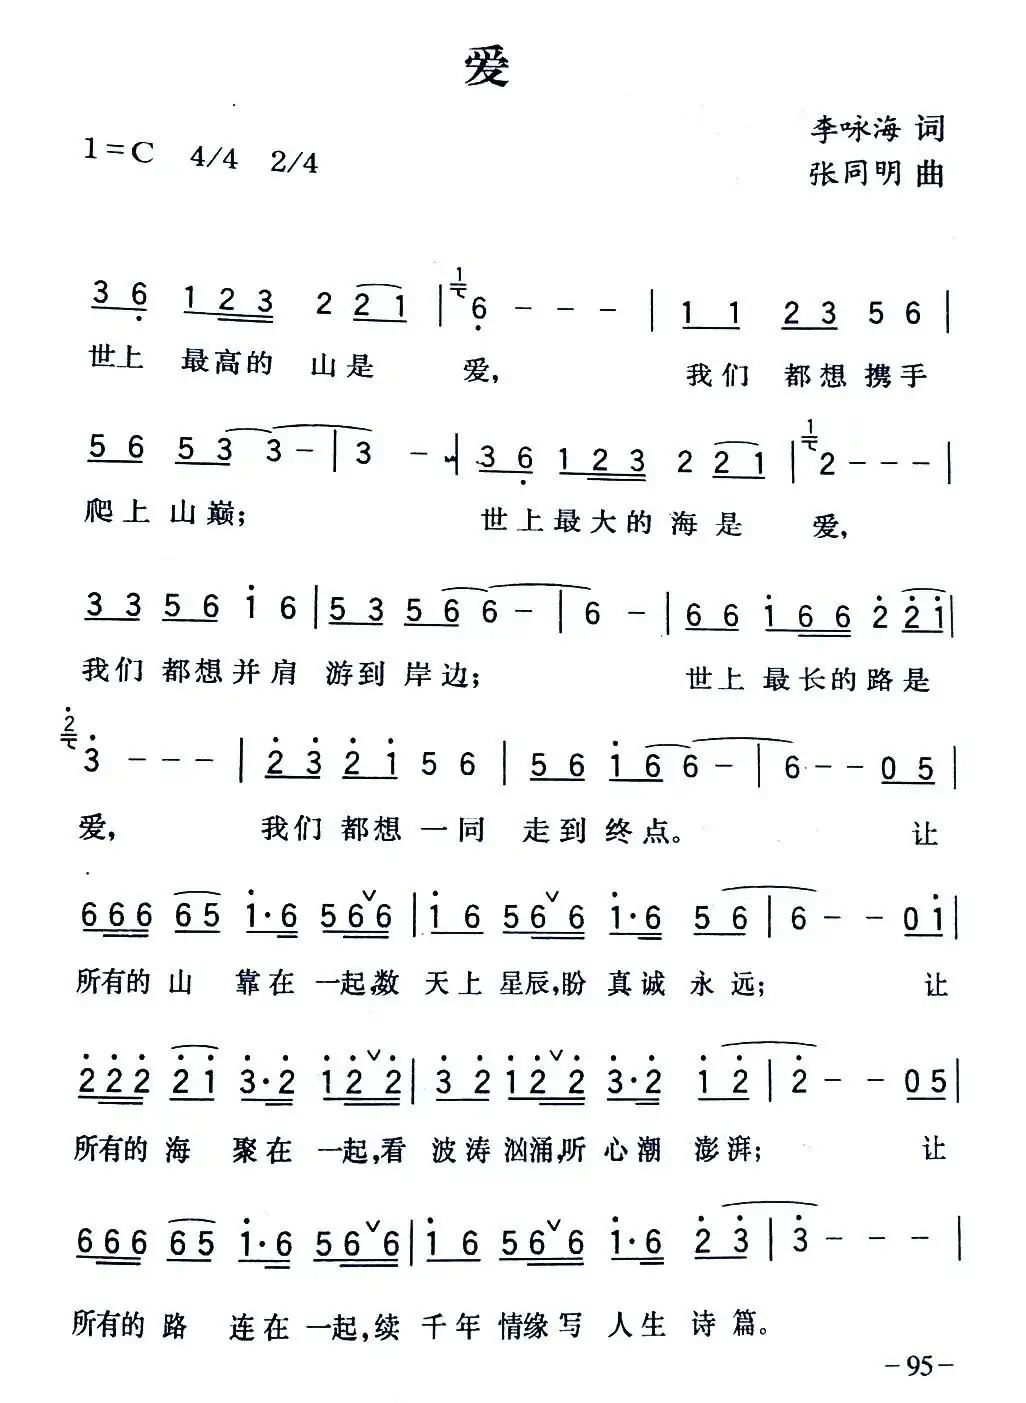 爱
李咏海 词
1=C 4/4 2/4
张同明 曲
3 6 1 2 3 2 2 1 | 1 6 - - - | 1 1 2 3 5 6 |
世上 最高的 山是 爱, 我们 都想携手
5 6 5 3 3 - | 3 - | 3 6 1 2 3 2 2 1 | 1 2 - - - |
爬上山巅; 世上最大的海是 爱,
3 3 5 6 i 6 | 5 3 5 6 6 - | 6 - | 6 6 i 6 6 2̇ 2̇ i |
我们 都想并肩 游到 岸边; 世上 最长的路是
2̇ 3̇ - - - | 2̇ 3̇ 2̇ i 5 6 | 5 6 i 6 6 - | 6 - - 0 5 |
爱, 我们 都想 一同 走到 终点。 让
6 6 6 6 5 i·6 5 6 ∨ 6 | i 6 5 6 ∨ 6 i·6 5 6 | 6 - - 0 i |
所有的 山 靠在 一起,数 天上 星辰,盼 真诚 永远; 让
2̇ 2̇ 2̇ 2̇ i 3̇·2̇ i 2̇ ∨ 2̇ | 3̇ 2̇ i 2̇ ∨ 2̇ 3̇·2̇ i 2̇ | 2̇ - - 0 5 |
所有的 海 聚在 一起,看 波涛 汹涌,听 心潮 澎湃; 让
6 6 6 6 5 i·6 5 6 ∨ 6 | i 6 5 6 ∨ 6 i·6 2̇ 3̇ | 3̇ - - - |
所有的 路 连在 一起,续 千年 情缘写 人生 诗篇。
-95-